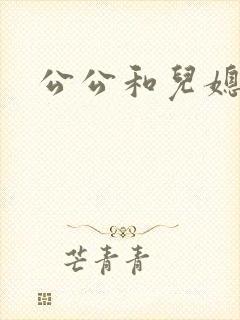 公公和兒媳
芒青青